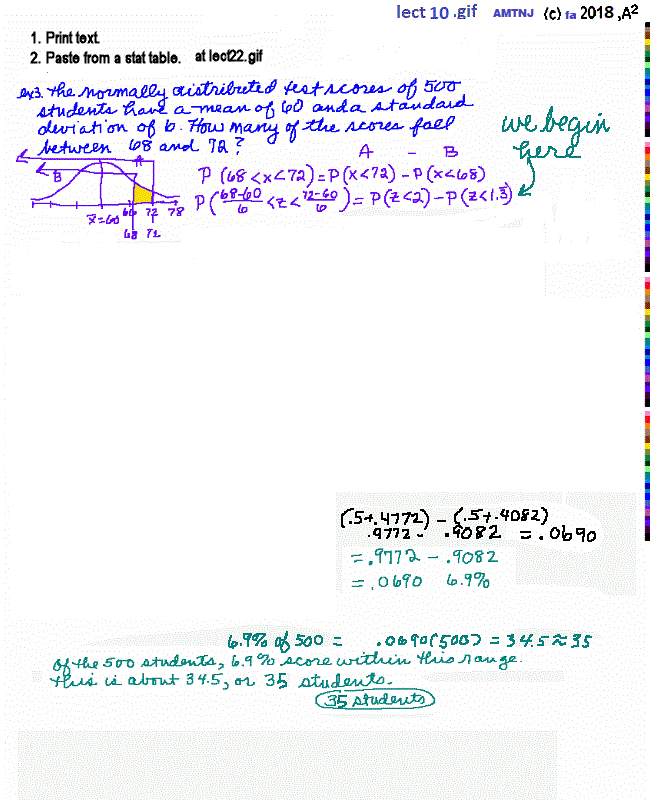 lect 10 .gif AMTNJ (c) fa 2018 ,A²
1. Print text.
2. Paste from a stat table. at lect22.gif
ex3. The normally distributed test scores of 500
students have a mean of 60 and a standard
deviation of 6. How many of the scores fall
between 68 and 72?
we begin
here
A - B
A
B
P (68<x<72)=P(x<72) - P(x<68)
P(68-60/6 <z< 72-60/6)= P(z<2) - P(z<1.3)
x̄=60 66 72 78
68 72
(.5+.4772) - (.5+.4082)
.9772 - .9082 = .0690
= .9772 - .9082
= .0690 6.9%
6.9% of 500 = .0690(500) = 34.5 ≈ 35
Of the 500 students, 6.9% score within this range.
This is about 34.5, or 35 students.
35 students